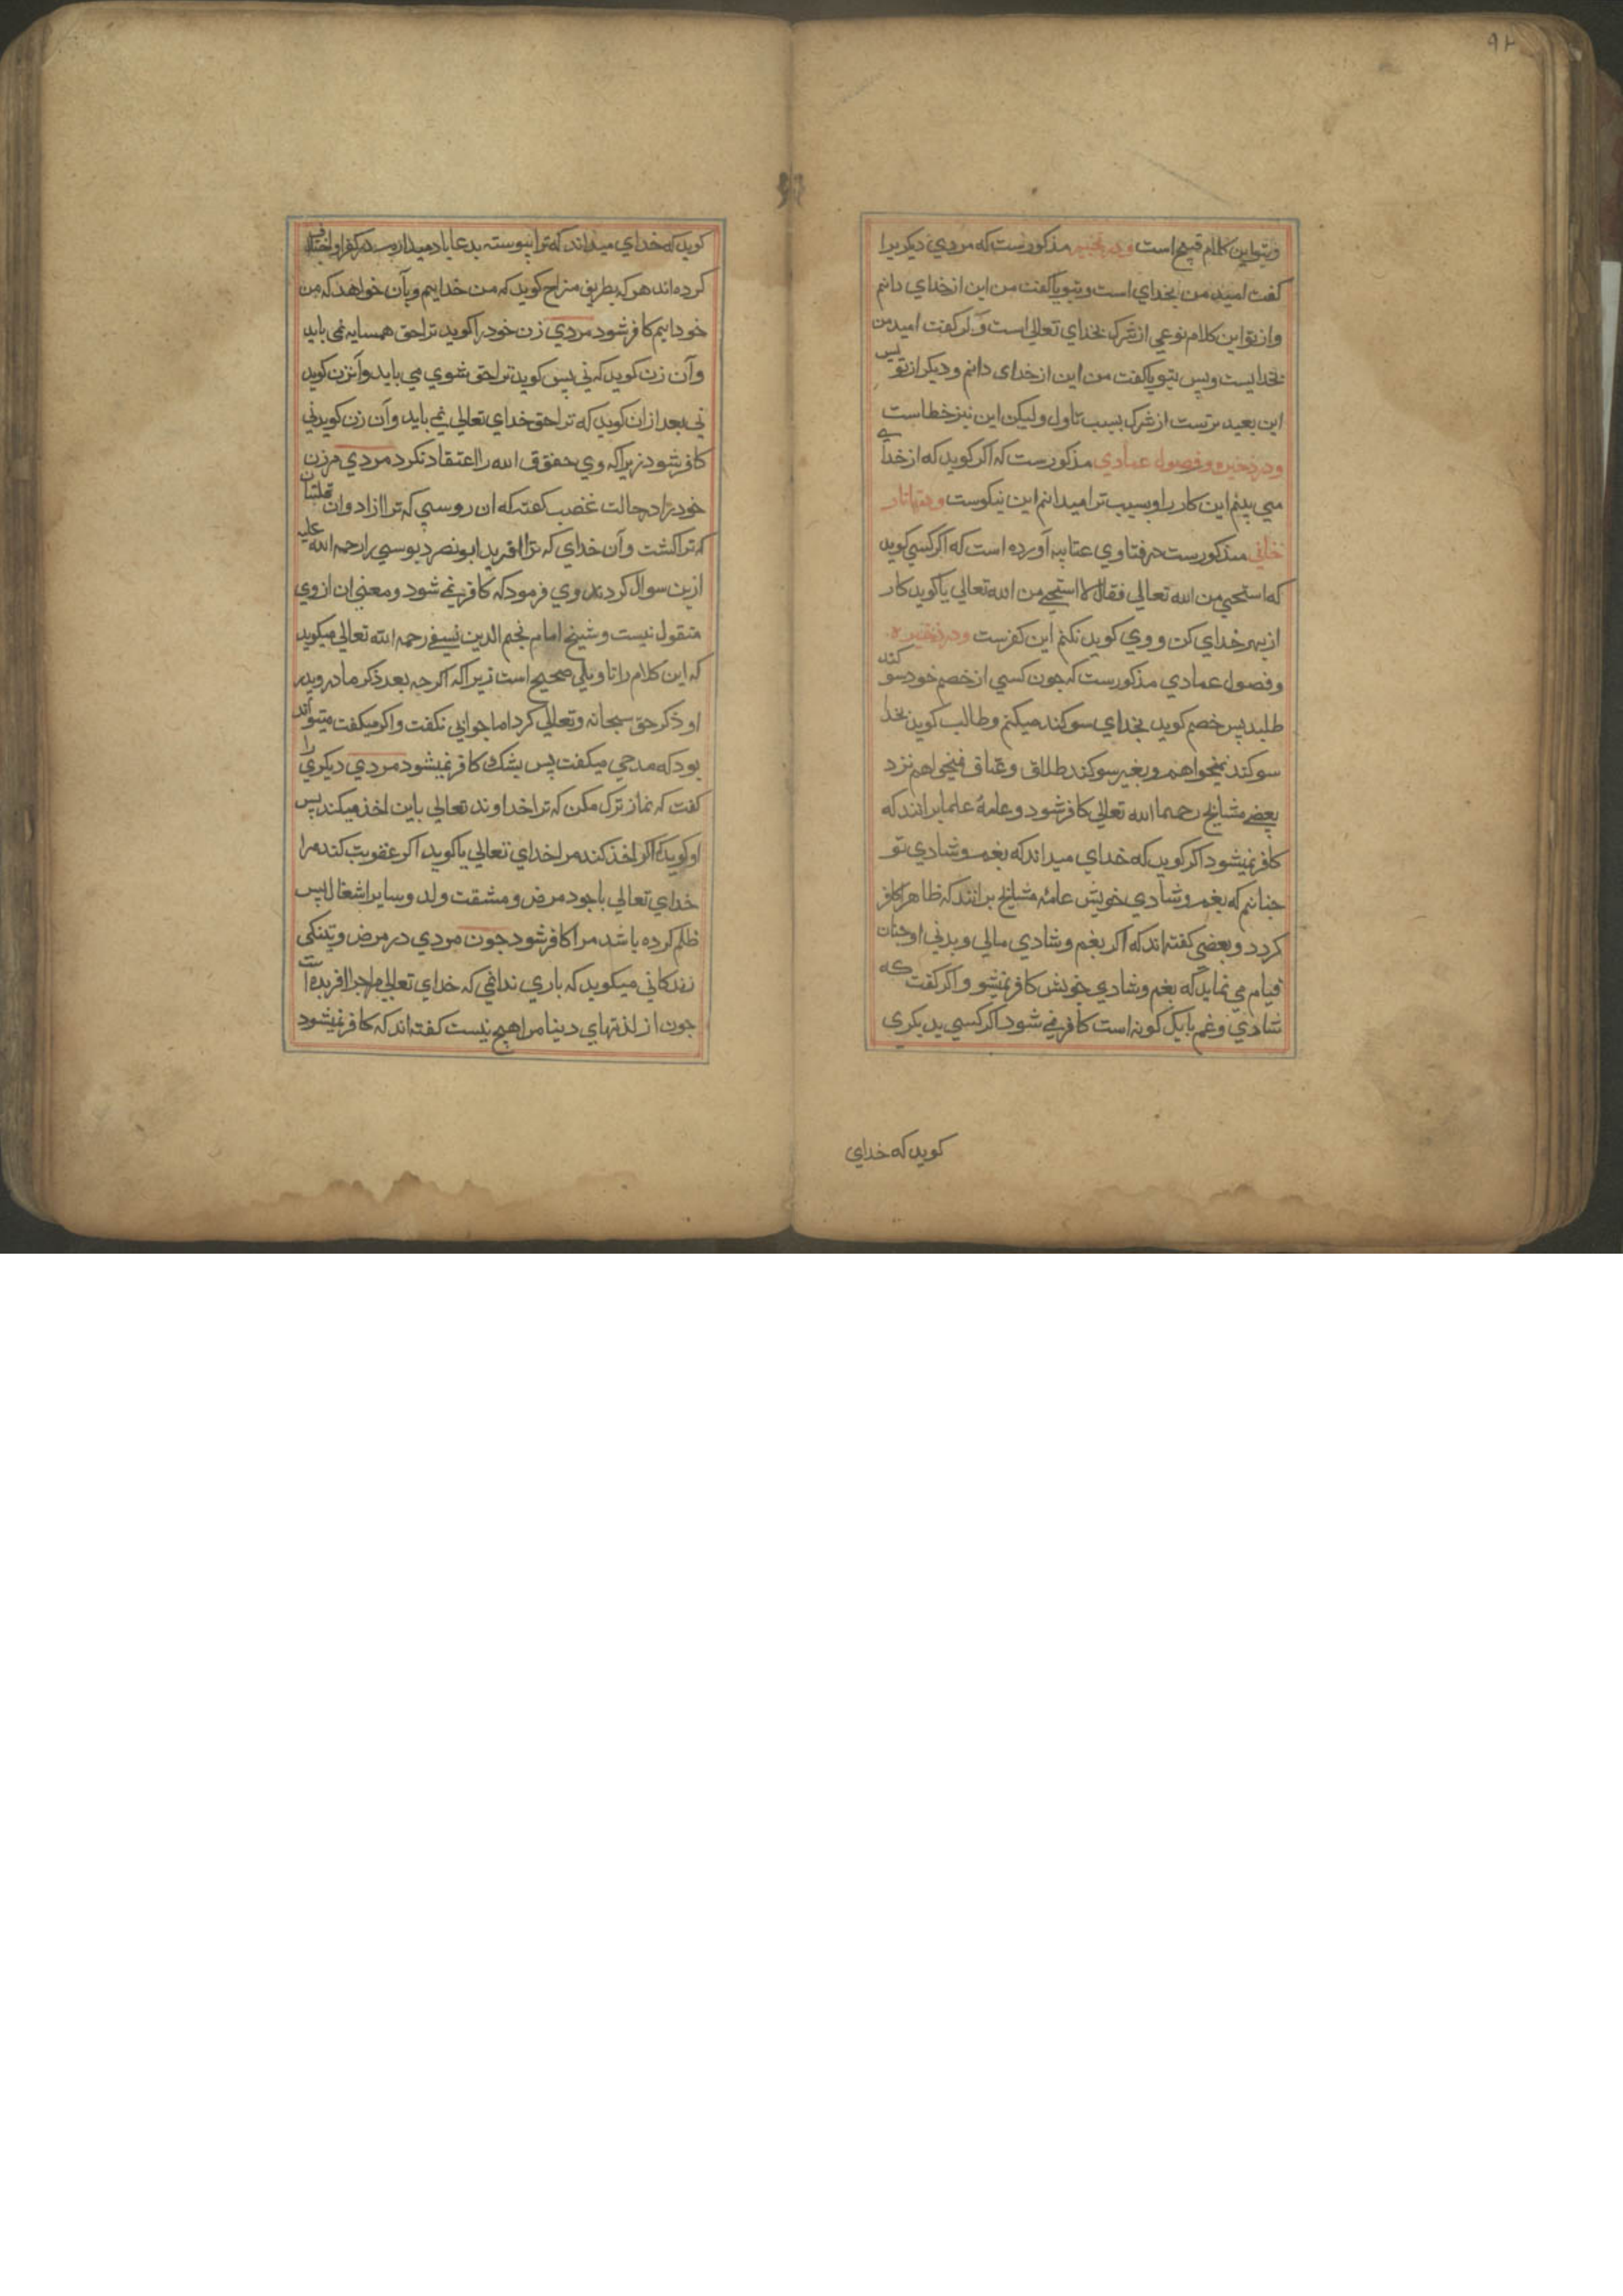 ۹۲
وبتو این کلام قبیح است ودر تجنیس مذکورست که مردي دیکریرا
کفت امید من بخداي است وبتو یا کفت من این از خداي دانم
واز تو این کلام نوعي از شرک بخداي تعالی است و اکر کفت امید من
بخدایست وپس بتو یا کفت من این از خدای دانم و دیکر از تو پس
این بعید ترست از شرک بسبب تاول ولیکن این نیز خطاست
ودر ذخیره وفصول عمادي مذکورست که اکر کوید که از خدا
مي بینم این کار را وسبب ترا میدانم این نیکوست ودر تاتار
خاني مذکورست در فتاوي عتابیه آورده است که اکر کسي کوید
که استحیي من الله تعالی فقال لا استحیي من الله تعالی یا کوید کار
از بهر خداي کن و وي کوید نکنم این کفرست ودر ذخیره
وفصول عمادي مذکورست که جون کسي از خصم خود سوکند
طلبد پس خصم کوید بخداي سوکند میکنم وطالب کوید بخدا
سوکند نمیخواهم وبغیر سوکند طلاق وعتاق نمیخواهم نزد
بعضے مشایخ رحمهما الله تعالی کافر شود وعامۀ علما برانند که
کافر نمیشود اکر کوید که خداي میداند که بغم وشادي تو
جنانم که بغم وشادي خویش عامۀ مشایخ برانند که ظاهرا کافر
کردد وبعضي کفته اند که اکر بغم وشادي مالي وبدني او جنان
قیام مي نماید که بغم وشادي خویش کافر نمیشو و اکر کفت که
شادي وغم بایک کونه است کافر نمے شود اکر کسي بدیکری
کوید که خداي
کوید که خداي میداند که ترا پیوسته بدعا یاد میدارم در کفر او اختلاف
کرده اند هر که بطریق مزاح کوید که من خدایم وبآن خواهد که من
خود ایم کافر شود مردي زن خود را کوید ترا حق همسایه نمی باید
وآن زن کوید که ني پس کوید ترا حق شوي مي باید وآنزن کوید
ني بعد ازان کوید که ترا حق خداي تعالی نمے باید وآن زن کوید ني
کافر شود زیرا که وي حقوق الله را اعتقاد نکرد مردي مر زن
خود را در حالت غضب کفته که ان روسپي که ترا زاد وان قلتبان
که ترا کشت وآن خداي که ترا افرید ابونصر دبوسي را رحمه الله علیه
ازین سوال کردند وي فرمود که کافر نمے شود ومعنی ان از وي
منقول نیست وشیخ امام نجم الدین نسفے رحمه الله تعالی میکوید
که این کلام را تاویلي صحیح است زیرا که اکرجه بعد ذکر مادر وپدر
او ذکر حق سبحانه وتعالی کرد اما جوابي نکفت واکر میکفت میتواند
بود که مدحي میکفت پس بشک کافر نمیشود مردي دیکري را
کفت که نماز ترک مکن که ترا خداوند تعالی باین اخذ میکند پس
او کوید که اکر اخذ کند مرا خداي تعالی یا کوید اکر عقوبت کند مرا
خداي تعالی باجود مرض ومشقت ولد وسایر اشغال پس
ظلم کرده باشد مرا کافر شود جون مردي در مرض وتنکی
زندکاني میکوید که باري ندانمي که خداي تعالی مرا جرا افریده است
جون از لذتهاي دینا مرا هیج نیست کفته اند که کافر نمیشود